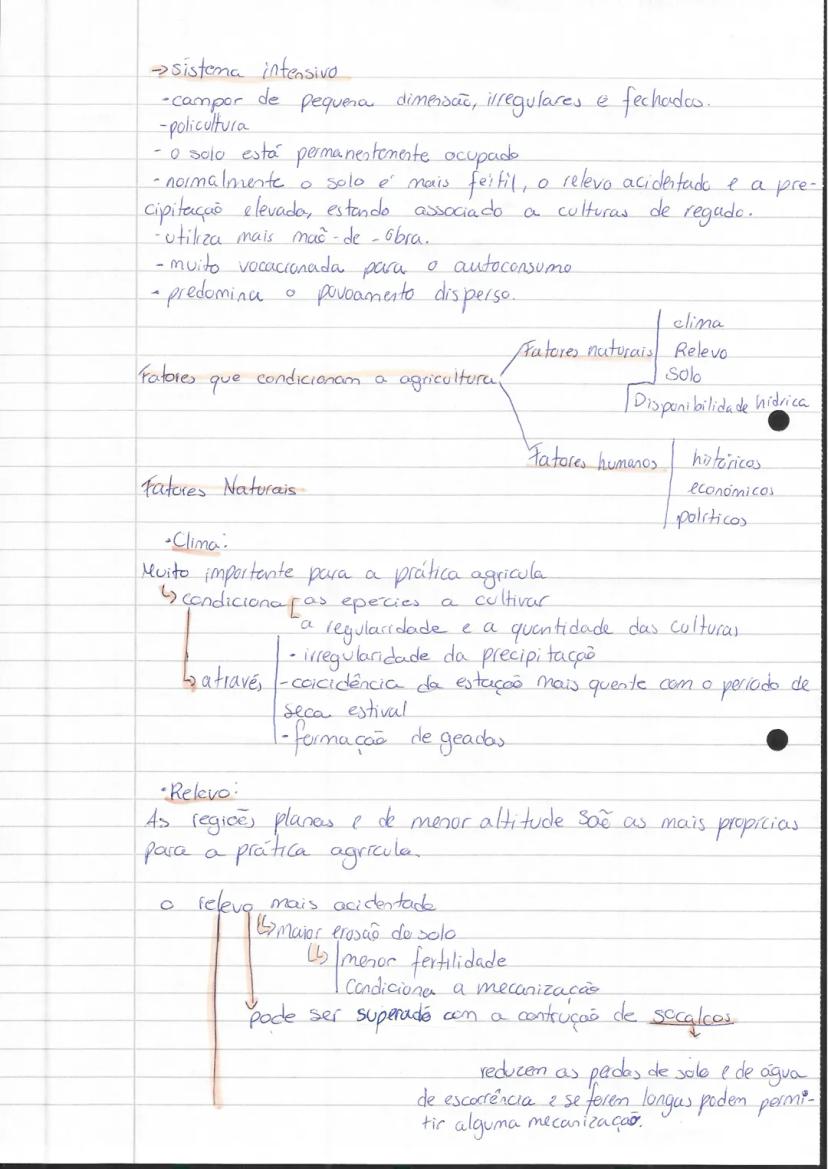 → sistema intensivo
- campor de pequena dimensão, irregulares e fechados.
- policultura
- o solo está permanentemente ocupado
- normalmente o solo é mais fértil, o relevo acidentado e a pre-
cipitação elevada, estando associado a culturas de regado.
- utiliza mais maõ-de-obra.
- muito vocacionada para o autoconsumo
- predomina o povoamento disperso.
Fatores que condicionam a agricultura
Fatores naturais
clima
Relevo
Solo
Disponibilidade hídrica
Fatores humanos
históricos
económicos
políticos
Fatores Naturais
• Clima:
Muito importante para a prática agrícula
↳ condiciona [ as epécies a cultivar
a regularidade e a quantidade das culturas
↳ através
- irregularidade da precipitação
- coicidência da estação mais quente com o período de
seca estival
- formação de geadas
• Relevo:
As regiões planas e de menor altitude saõ as mais propícias
para a prática agrícula.
O relevo mais acidentado
↳ maior erosão do solo
↳ menor fertilidade
condiciona a mecanização
pode ser superado com a contrução de socalcos
reduzem as perdas de solo e de água
de escorrência e se forem longas podem permi-
tir alguma mecanização.